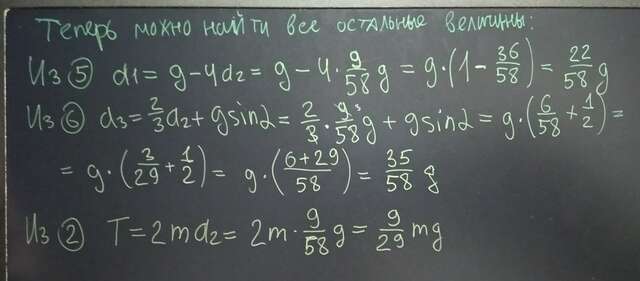 Теперь можно найти все остальные величины:
Из ⑤ a₁ = g − 4a₂ = g − 4·9/58 g = g·(1 − 36/58) = 22/58 g
Из ⑥ a₃ = 2/3 a₂ + g sinα = 2/3 · 9³/58 g + g sinα = g·(6/58 + 1/2) =
= g·(3/29 + 1/2) = g·((6+29)/58) = 35/58 g
Из ② T = 2ma₂ = 2m·9/58 g = 9/29 mg